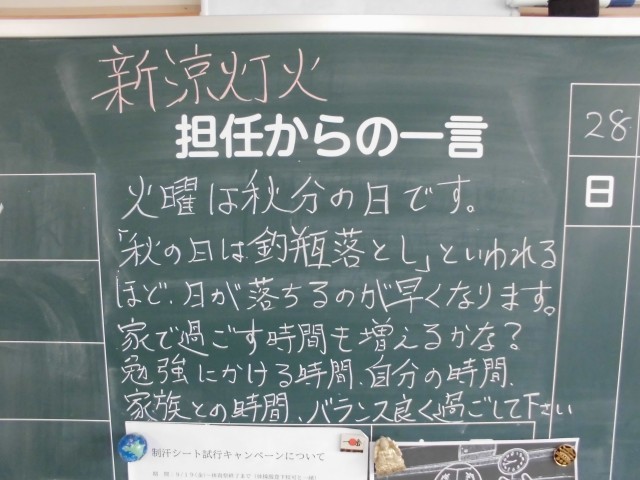 新涼灯火
担任からの一言
28
日
火曜は秋分の日です。
「秋の日は釣瓶落とし」といわれる
ほど、日が落ちるのが早くなります。
家で過ごす時間も増えるかな?
勉強にかける時間、自分の時間、
家族との時間、バランス良く過ごして下さい
制汗シート試行キャンペーンについて